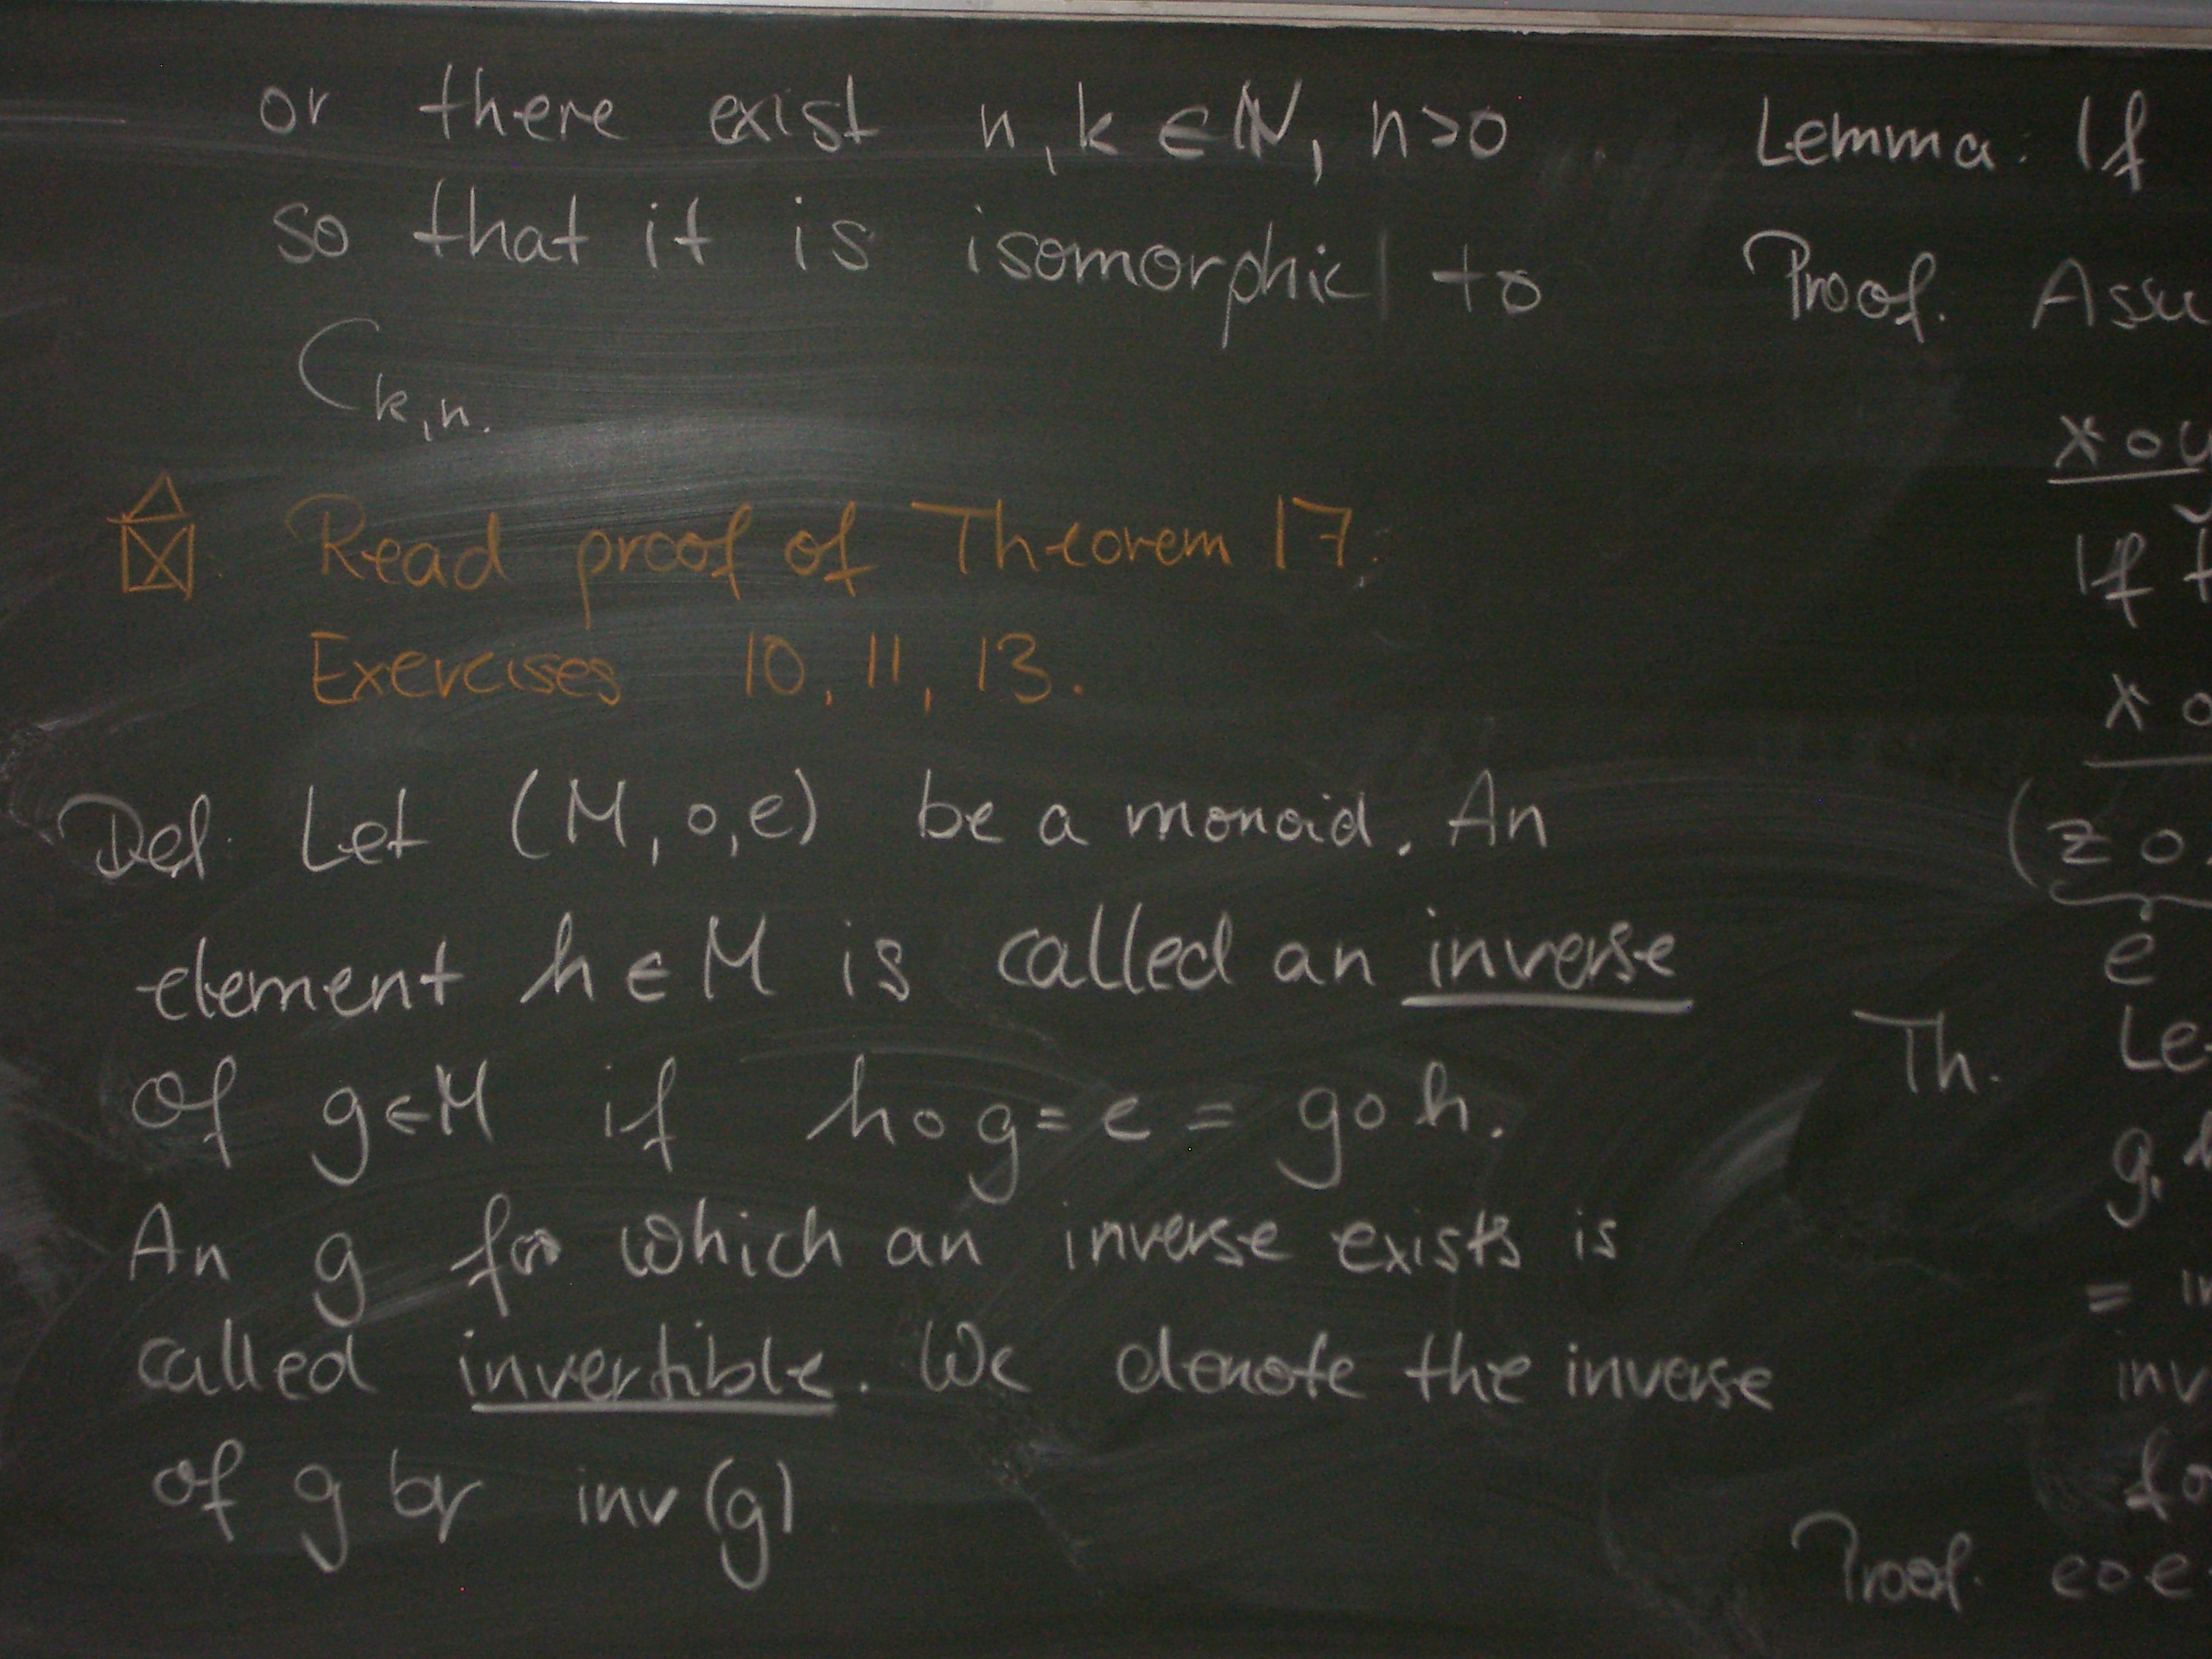 or there exist n, k ∈ ℕ, n>0
so that it is isomorphic to
C_{k,n}.
Read proof of Theorem 17.
Exercises 10, 11, 13.
Def. Let (M, o, e) be a monoid. An
element h ∈ M is called an inverse
of g ∈ M if h o g = e = g o h.
An g for which an inverse exists is
called invertible. We denote the inverse
of g by inv(g)
Lemma: If
Proof. Assu
x o
If
x o
(z o
e
Th. Le
g,
= in
inv
fo
Proof. e o e